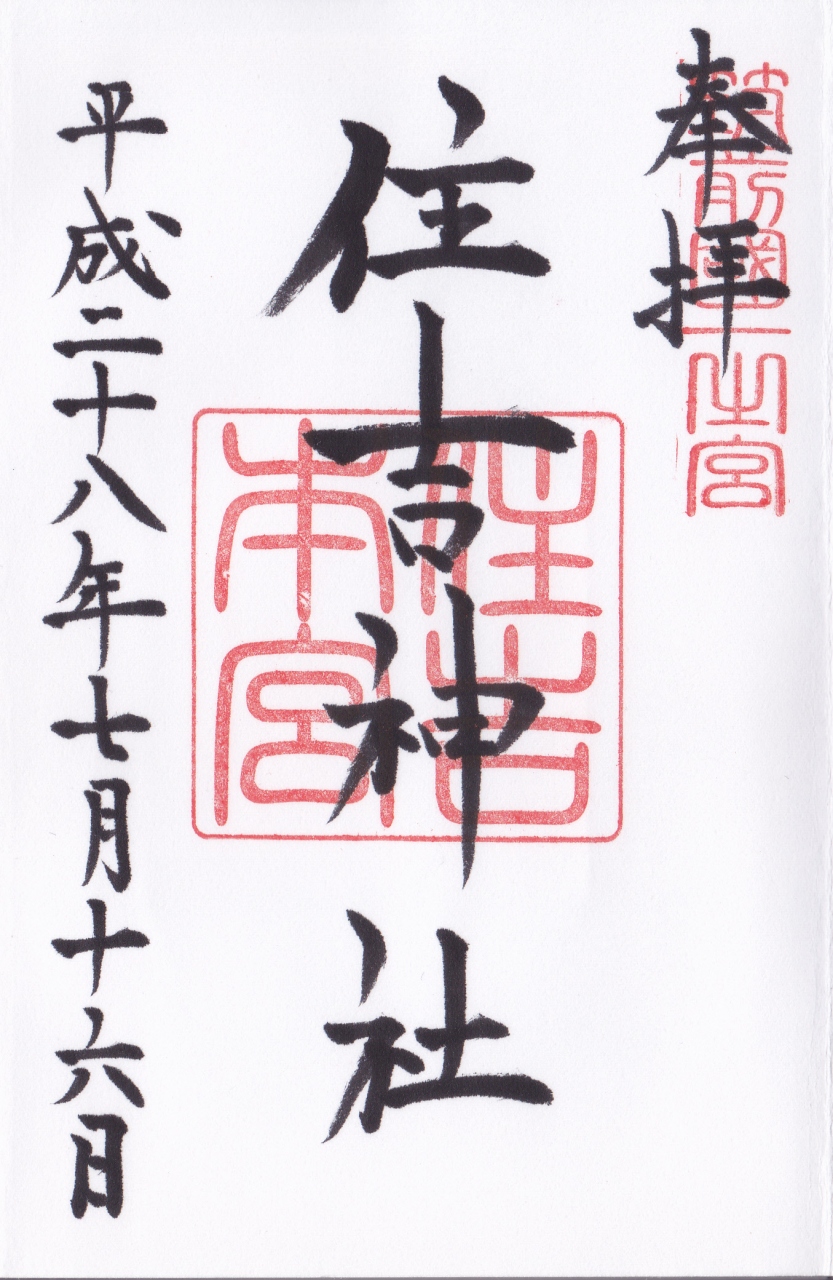 奉拝
筑前國一之宮
住吉神社
住吉
本宮
平成二十八年七月十六日